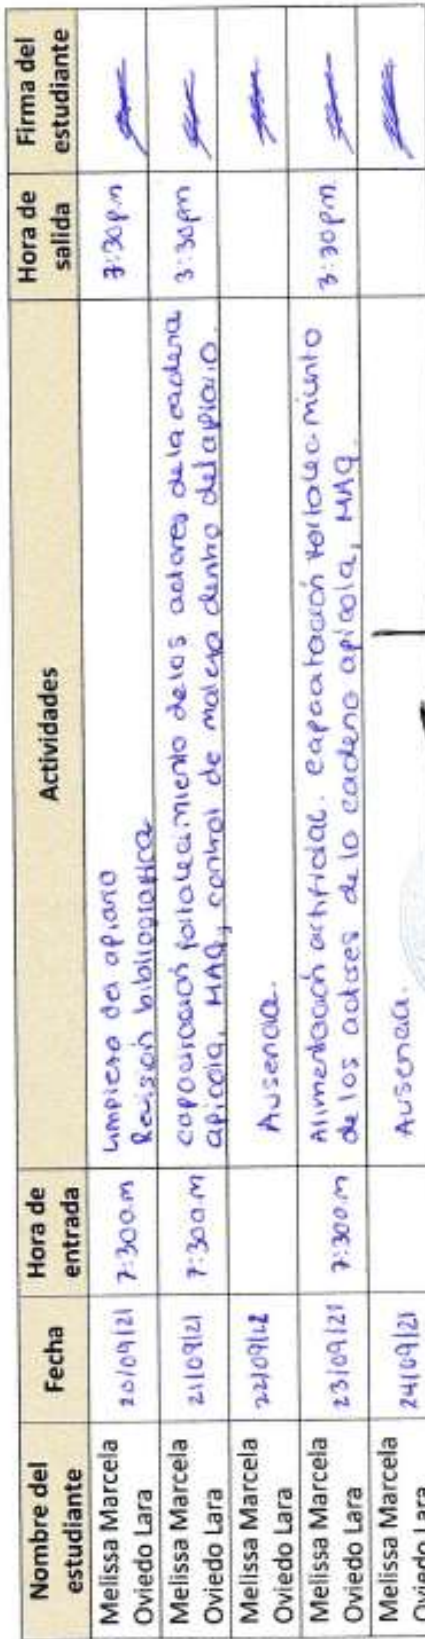 Nombre del estudiante | Fecha | Hora de entrada | Actividades | Hora de salida | Firma del estudiante
Melissa Marcela Oviedo Lara | 20/09/21 | 7:30a.m | Limpieza del apiario
Revisión bibliografica | 7:30p.m
Melissa Marcela Oviedo Lara | 21/09/21 | 7:30a.m | capacitación fortalecimiento de los actores de la cadena
apicola, MAG, control de maleza dentro del apiario. | 3:30pm
Melissa Marcela Oviedo Lara | 22/09/21 | Ausencia.
Melissa Marcela Oviedo Lara | 23/09/21 | 7:30a.m | Alimentación artificial. capacitación fortalecimiento
de los actores de la cadena apícola, MAG. | 3:30pm.
Melissa Marcela Oviedo Lara | 24/09/21 | Ausencia.